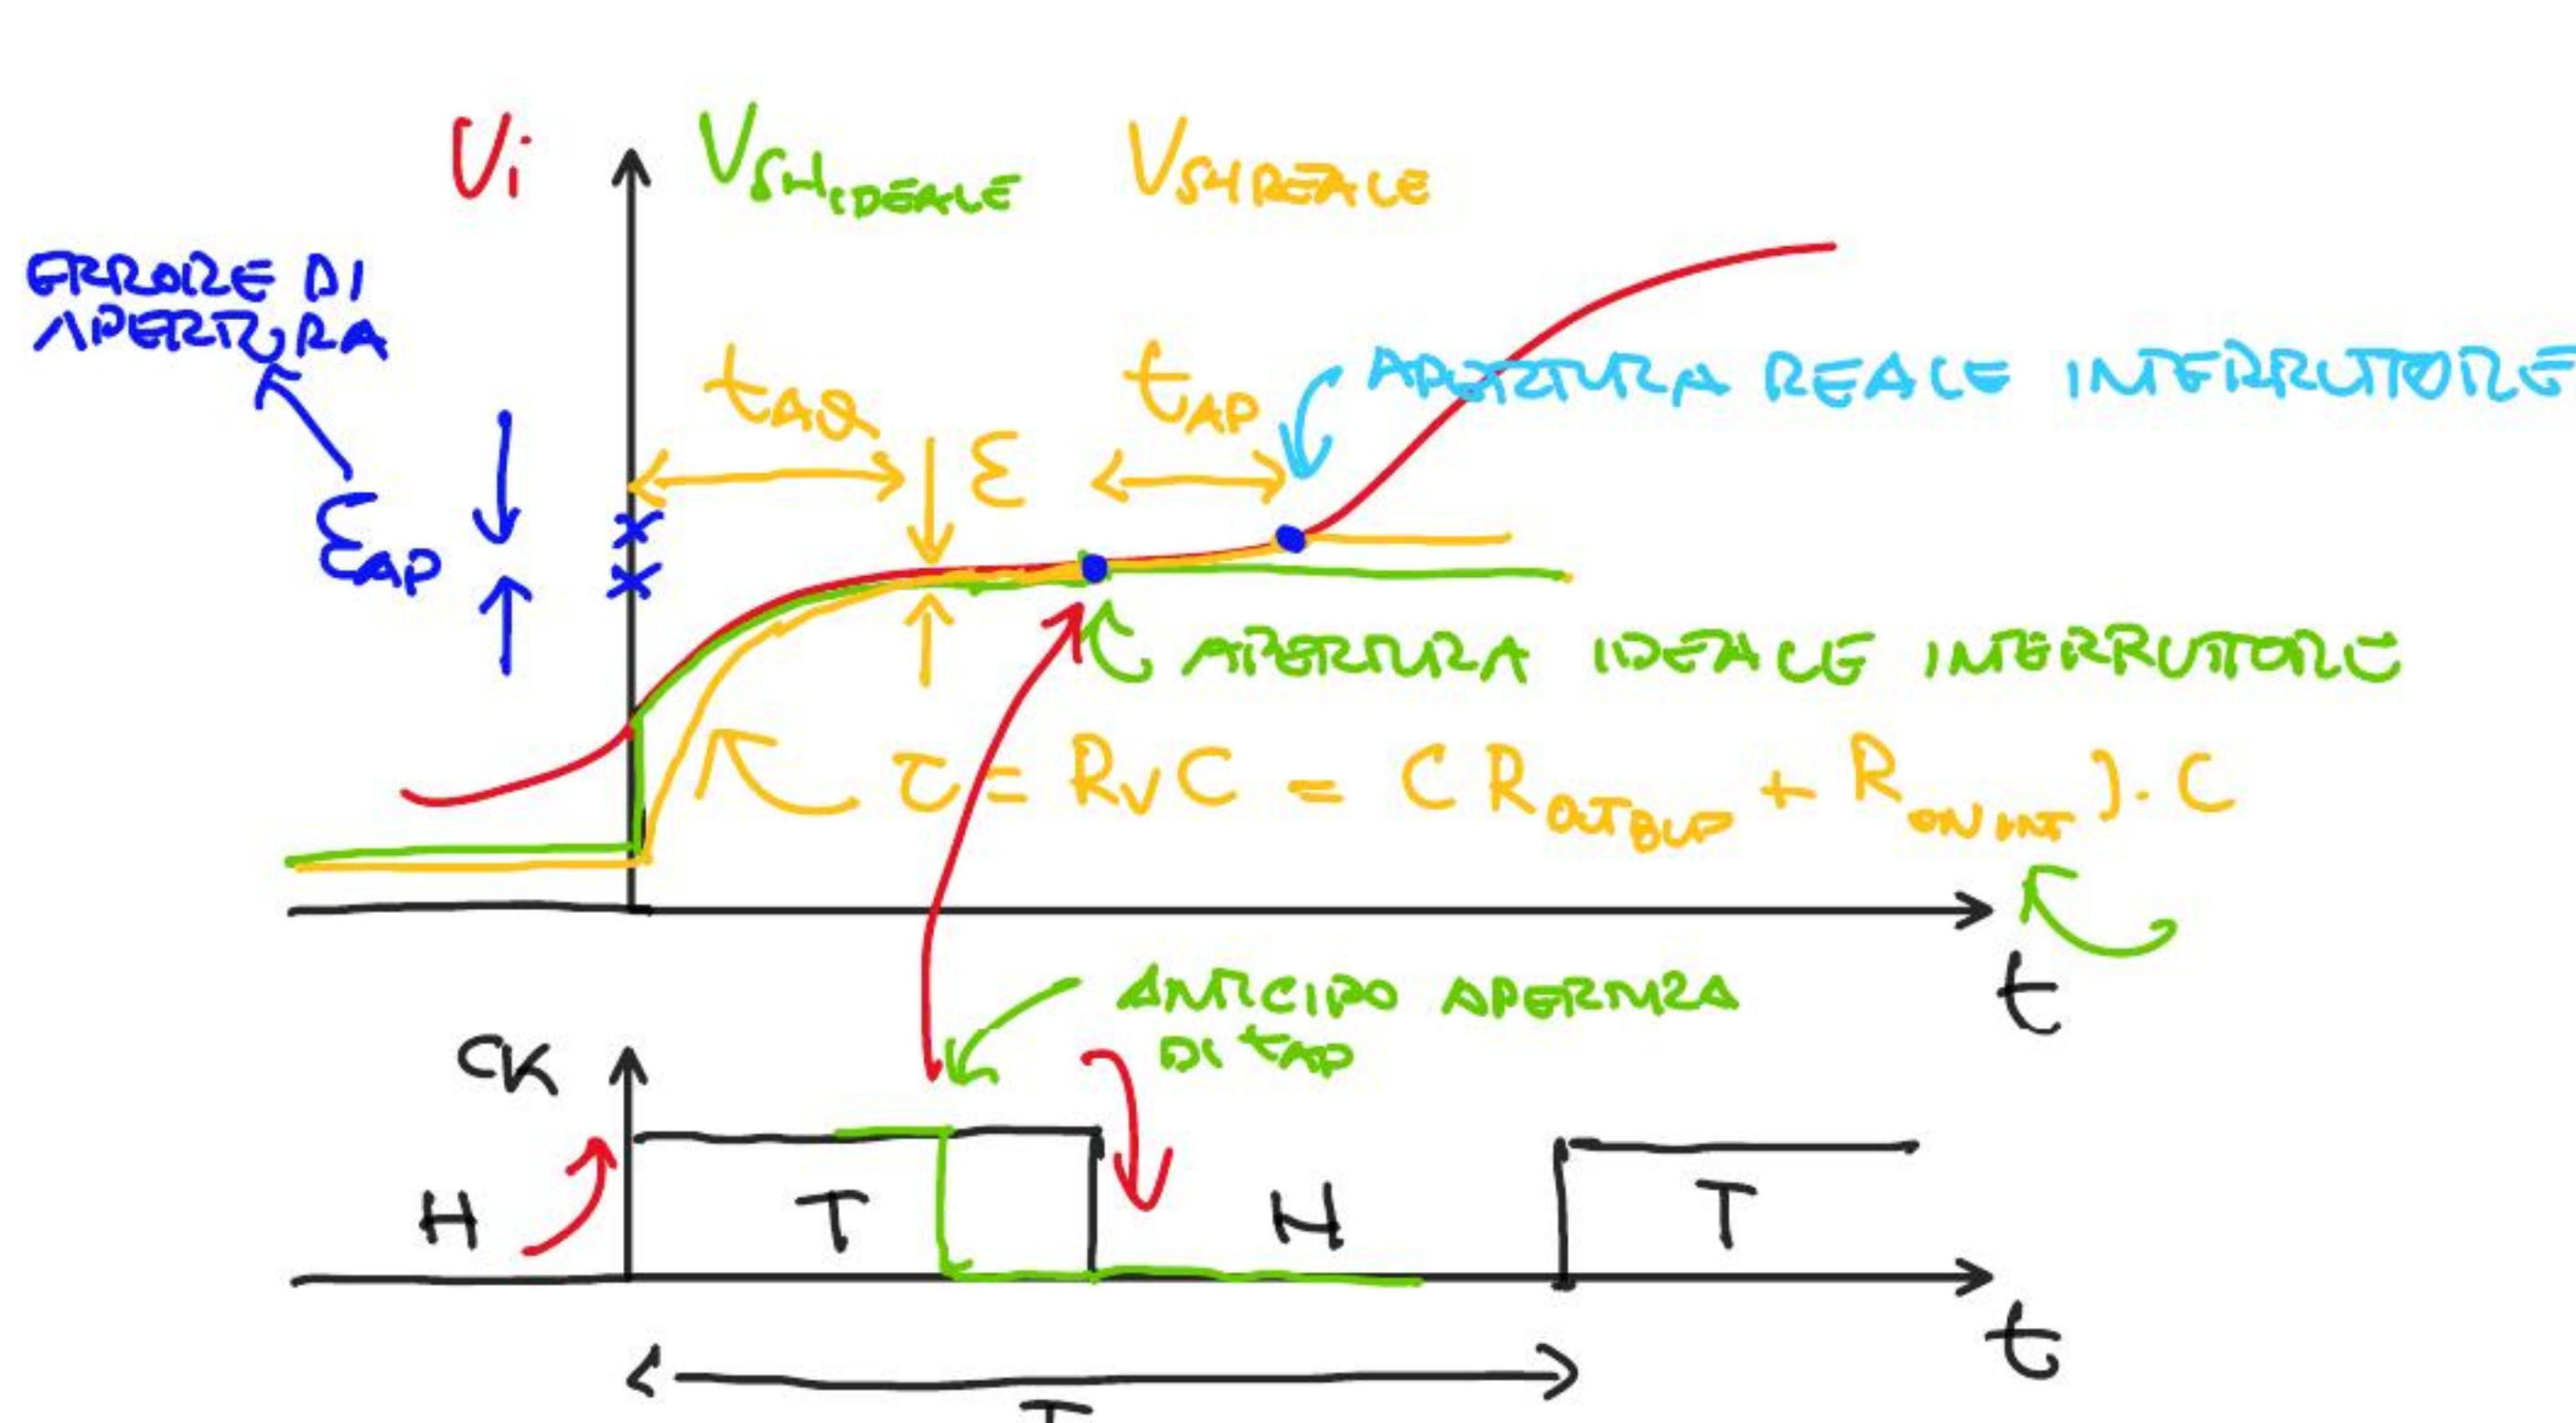 Vi
VSH IDEALE
VSH REALE
ERRORE DI
APERTURA
tAQ
tAP
APERTURA REALE INTERRUTTORE
ε
εAP
APERTURA IDEALE INTERRUTTORE
τ = RvC = (ROUTBUF + RON INT) · C
t
ANTICIPO APERTURA
DI tAP
CK
H
T
H
T
t
T